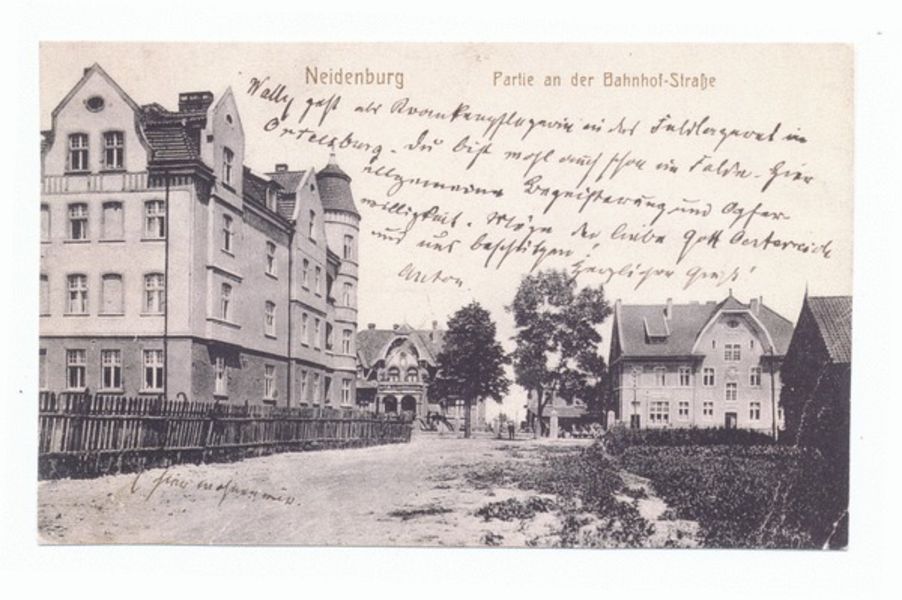 Neidenburg Partie an der Bahnhof-Straße
Wally geht als Krankenpflegerin in das Feldlazarett in
Ortelsburg. Du bist wohl auch schon im Felde. Hier
allgemeine Begeisterung und Opfer-
willigkeit. Möge der liebe Gott Oesterreich
und uns beschützen! Herzlichen Gruß!
Anton
hier wohnen wir